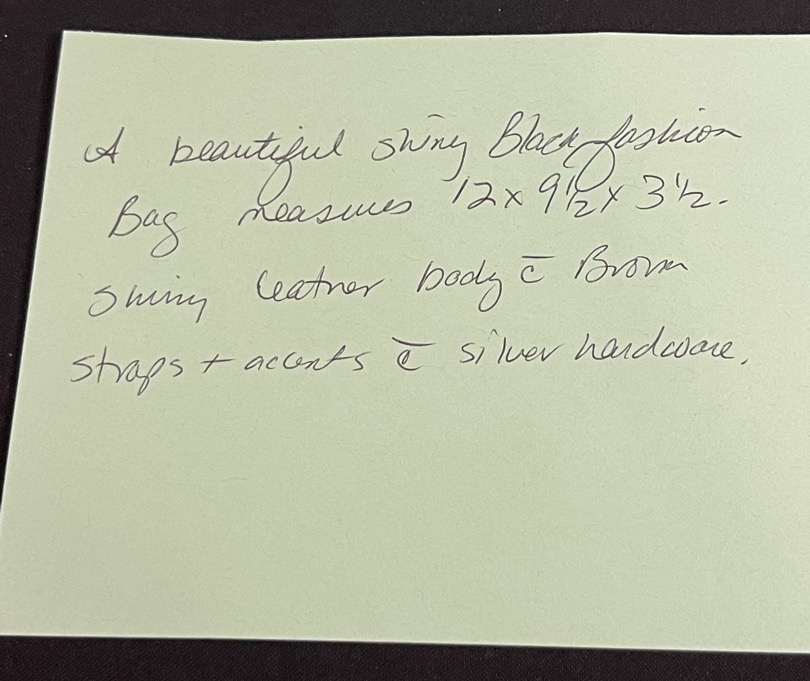 A beautiful shiny Black fashion
Bag measures 12 x 9½ x 3½.
Shiny leather body c̄ Brown
straps + accents c̄ silver hardware.